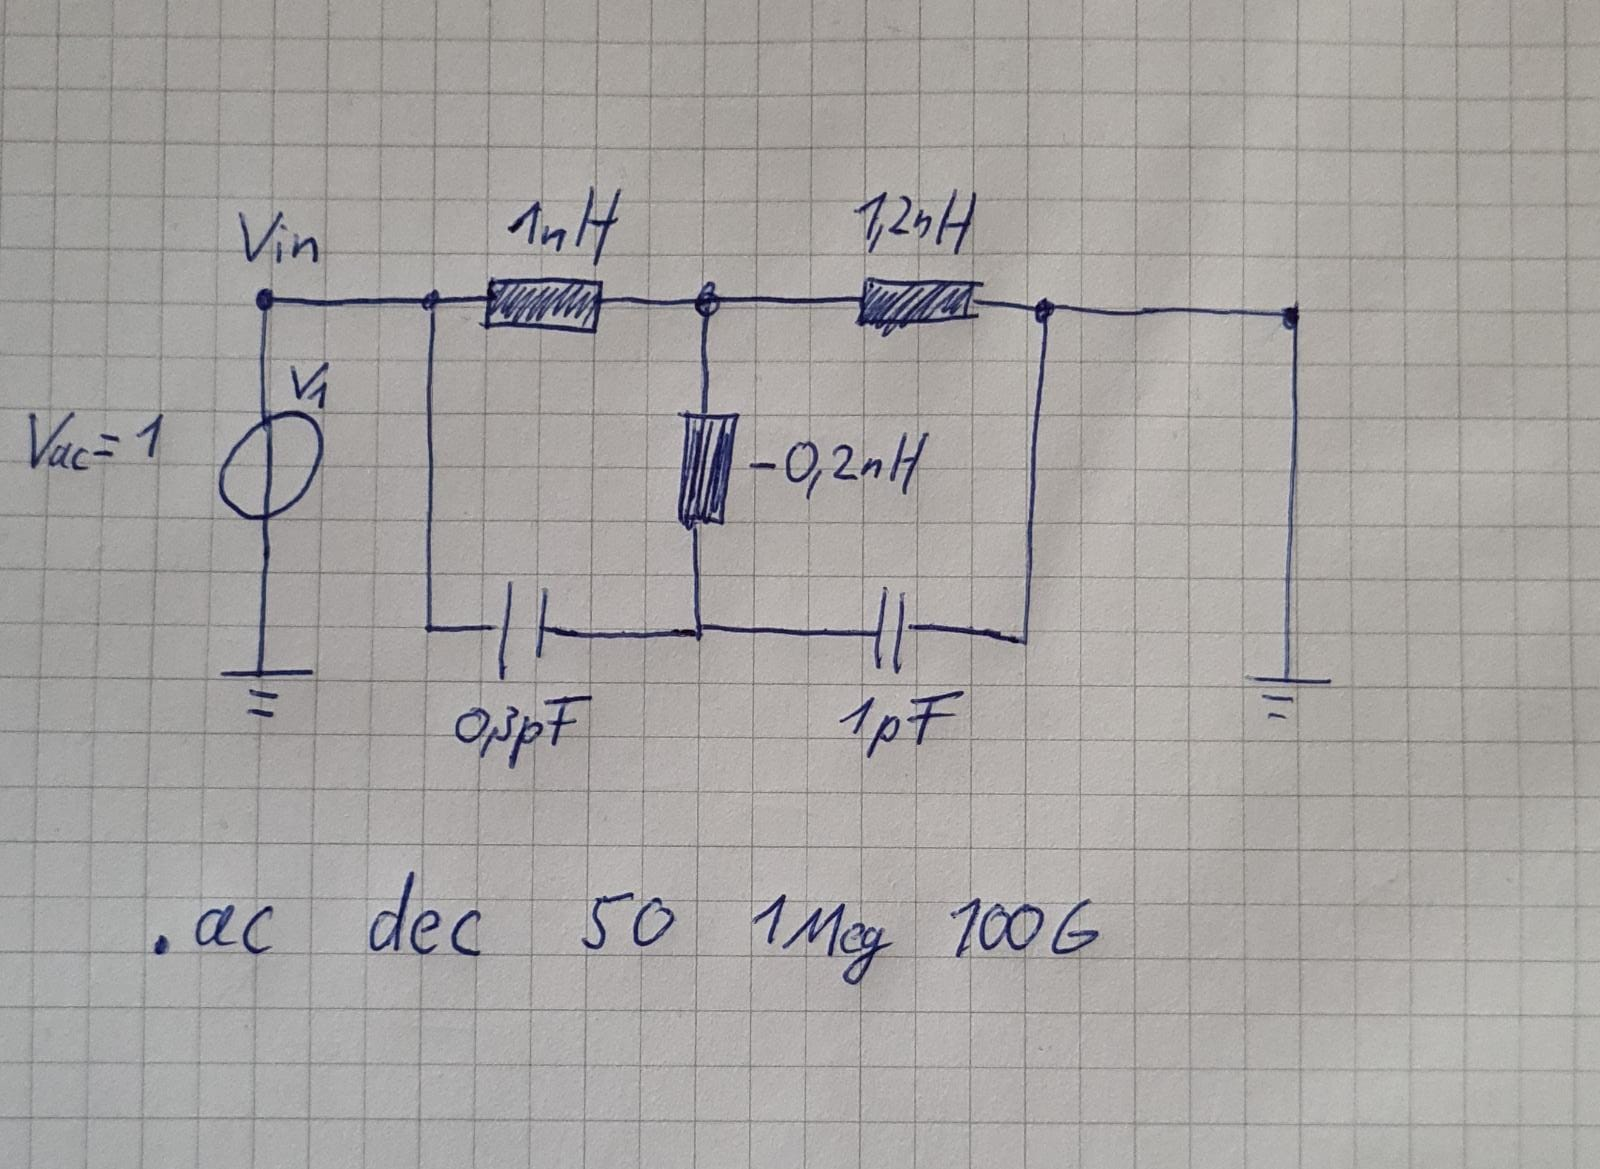 1nH 1,2nH
Vin
V1
Vac=1
-0,2nH
0,3pF 1pF
.ac dec 50 1Meg 100G